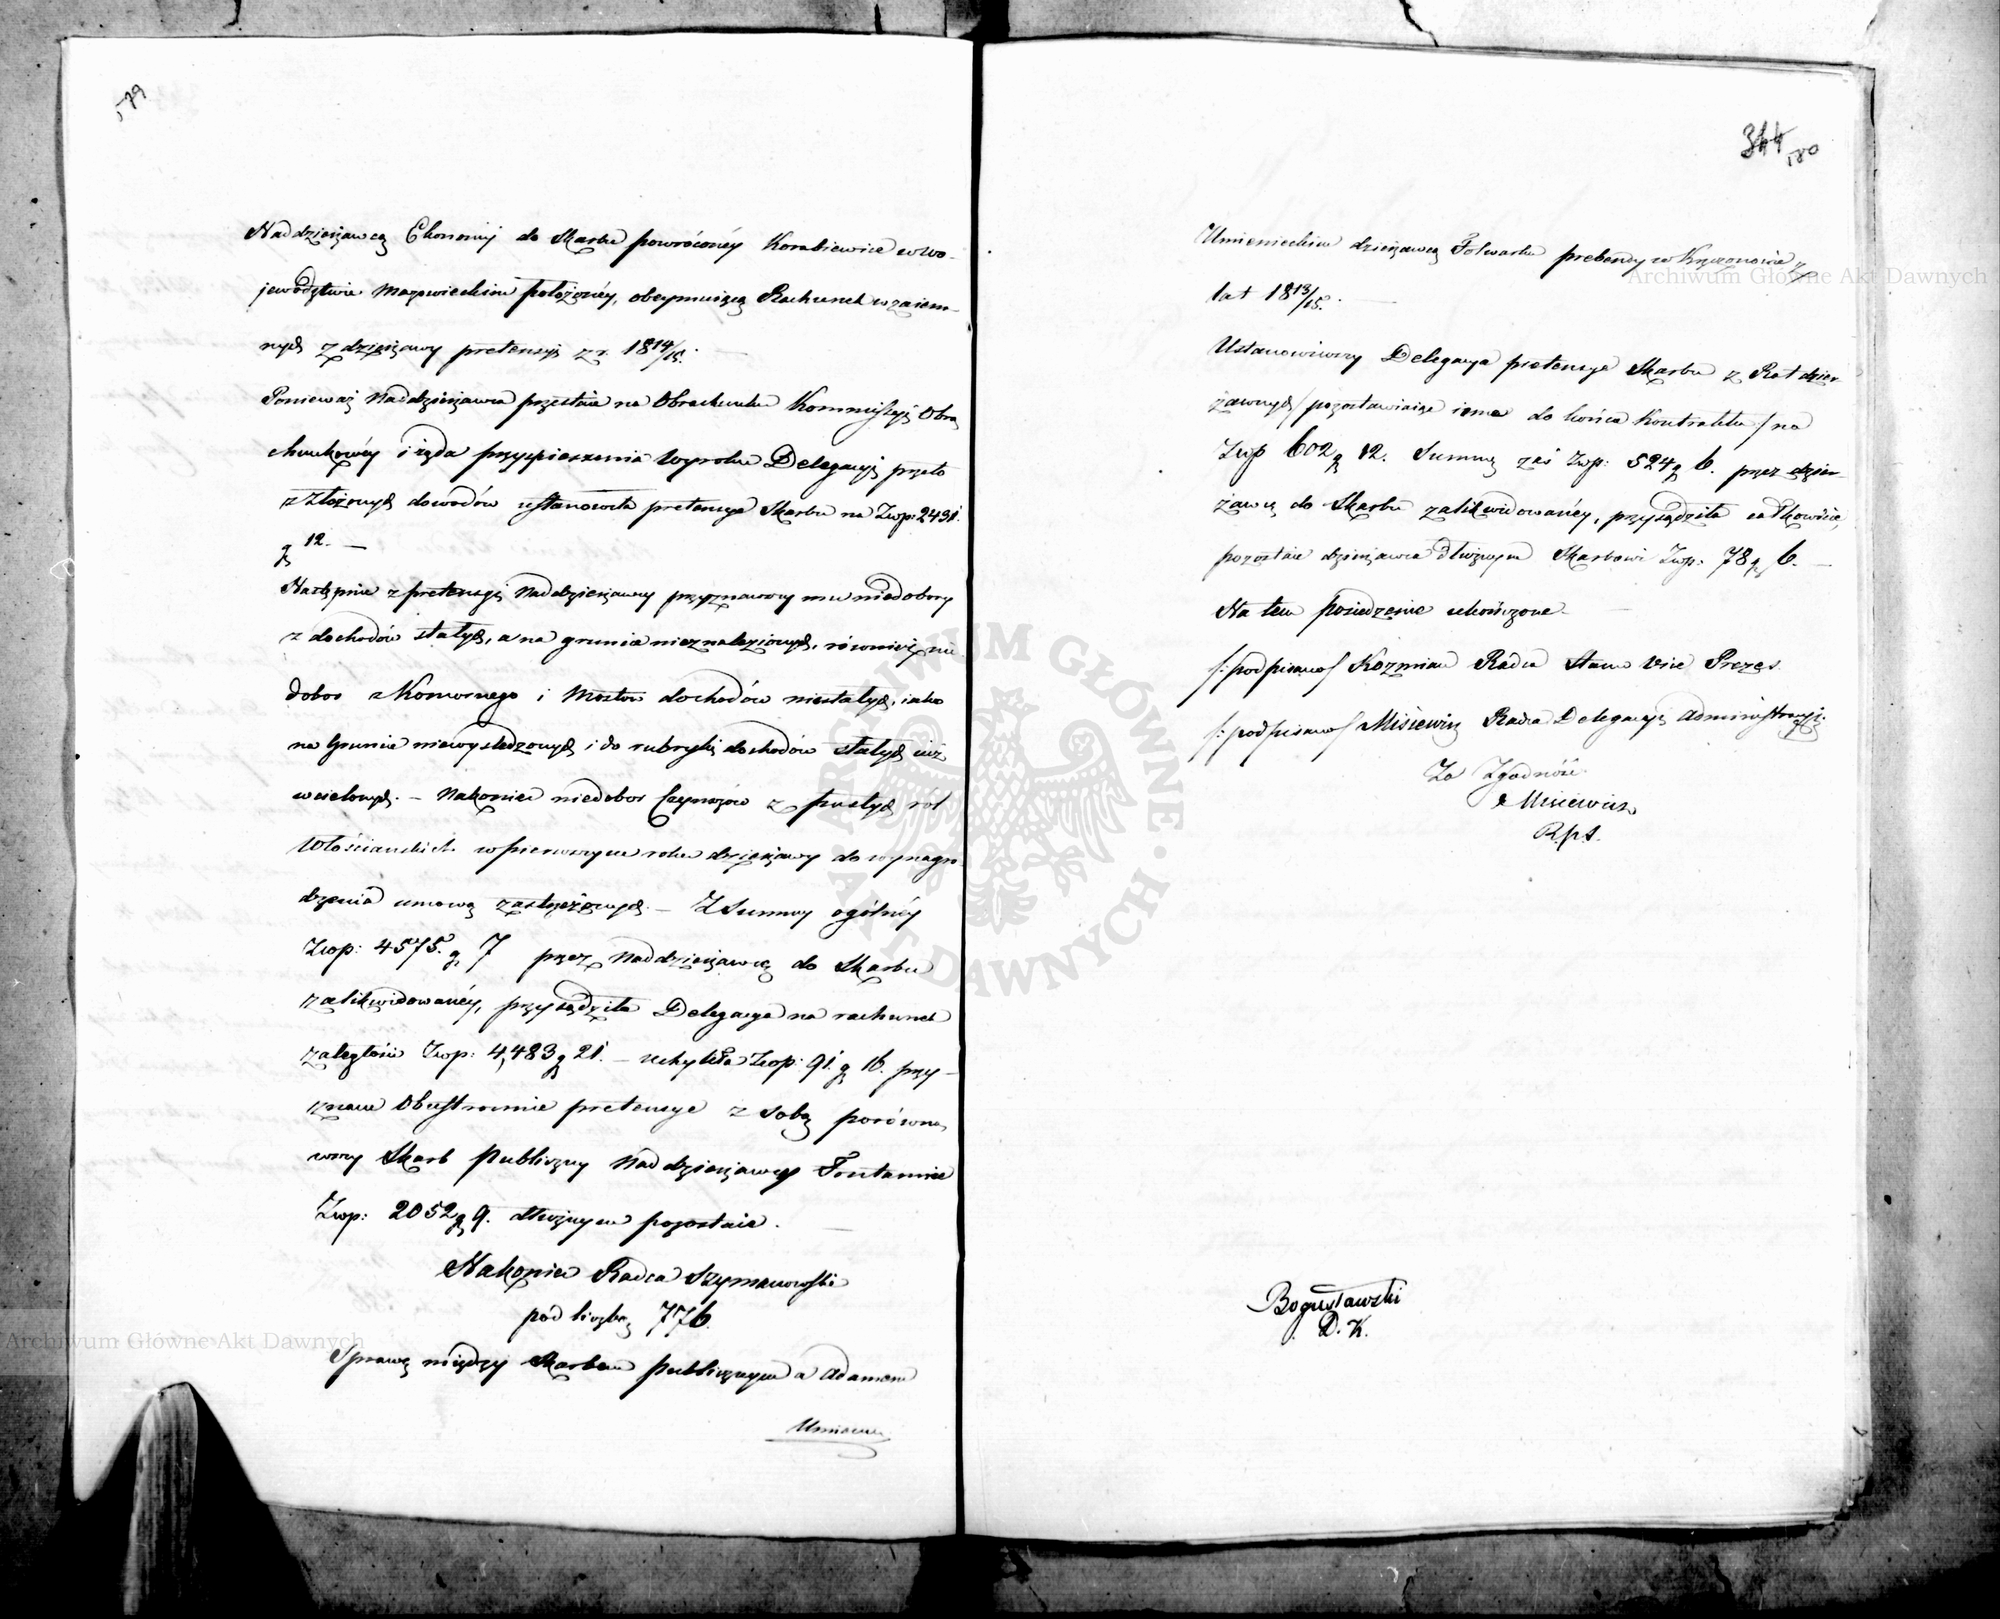 579
Naddzierżawcą Ekonomij do Skarbu powróconéy Korabiewice w wo-
jewództwie Mazowieckim położonéy, obeymuiącą Rachunek wzaiem-
nych z dzierżawy pretensyi z r. 1814/15. —
Ponieważ Naddzierżawca przestaie na Obrachunku Kommissyi Obra
chunkowéy i żąda przyspieszenia Wyroku Delegacyi przeto
z złożonych dowodów ustanowiła pretensye Skarbu na Złwp: 2431.
g 12. —
Następnie z pretensyi Naddzierżawcy przyznawszy mu niedobory
z dochodów stałych, a na gruncie nieznalezionych, również nie
dobor z Komornego i Mostow dochodów niestałych, iako
na Gruncie niewysledzonych i do rubryki dochodów stałych iuż
wcielonych. — Nakoniec niedobor Czynszów z pustych ról
Włościańskich w pierwszym roku dzierżawy do wynagro
dzenia umową zastrzeżonych. — Z Summy ogólnéy
Złwp: 4575. g 7 przez Naddzierżawcę do Skarbu
zalikwidowanéy, przysądziła Delegacya na rachunek
zaległości Złwp: 4,483 g 21. — uchyliła Złwp: 91. g 16. przy-
znane Obustronnie pretensye z sobą porówna
wszy Skarb Publiczny Naddzierżawcy Fontannie
Złwp: 2052 g 9. dłużnym pozostaie. —
Nakoniec Radca Szymanowski
pod liczbą 776.
Sprawę między Skarbem Publicznym a Adamem
344 580
Umienieckim dzierżawcą Folwarku prebendy w Krzczonowie z
lat 1813/15. —
Ustanowiwszy Delegacya pretensye Skarbu z Rat dzier
żawnych / pozostawiaiąc inne do końca Kontraktu / na
Złwp 602 g 12. Summę zaś Złwp: 524 g 6. przez dzier-
żawcę do Skarbu zalikwidowanéy, przysądziła całkowicie,
pozostaie dzierżawca dłużnym Skarbowi Złwp: 78 g 6. —
Na tem posiedzenie ukończone. —
/: podpisano / Kozmian Radca Stanu Vice Prezes.
/: podpisano / Misiewicz Radca Delegacyi Administracyi.
Za Zgodność
Misiewicz
R.p.S.
Bogusławski
D. K.
Archiwum Główne Akt Dawnych
Archiwum Główne Akt Dawnych
ARCHIWUM GŁÓWNE · AKT DAWNYCH ·